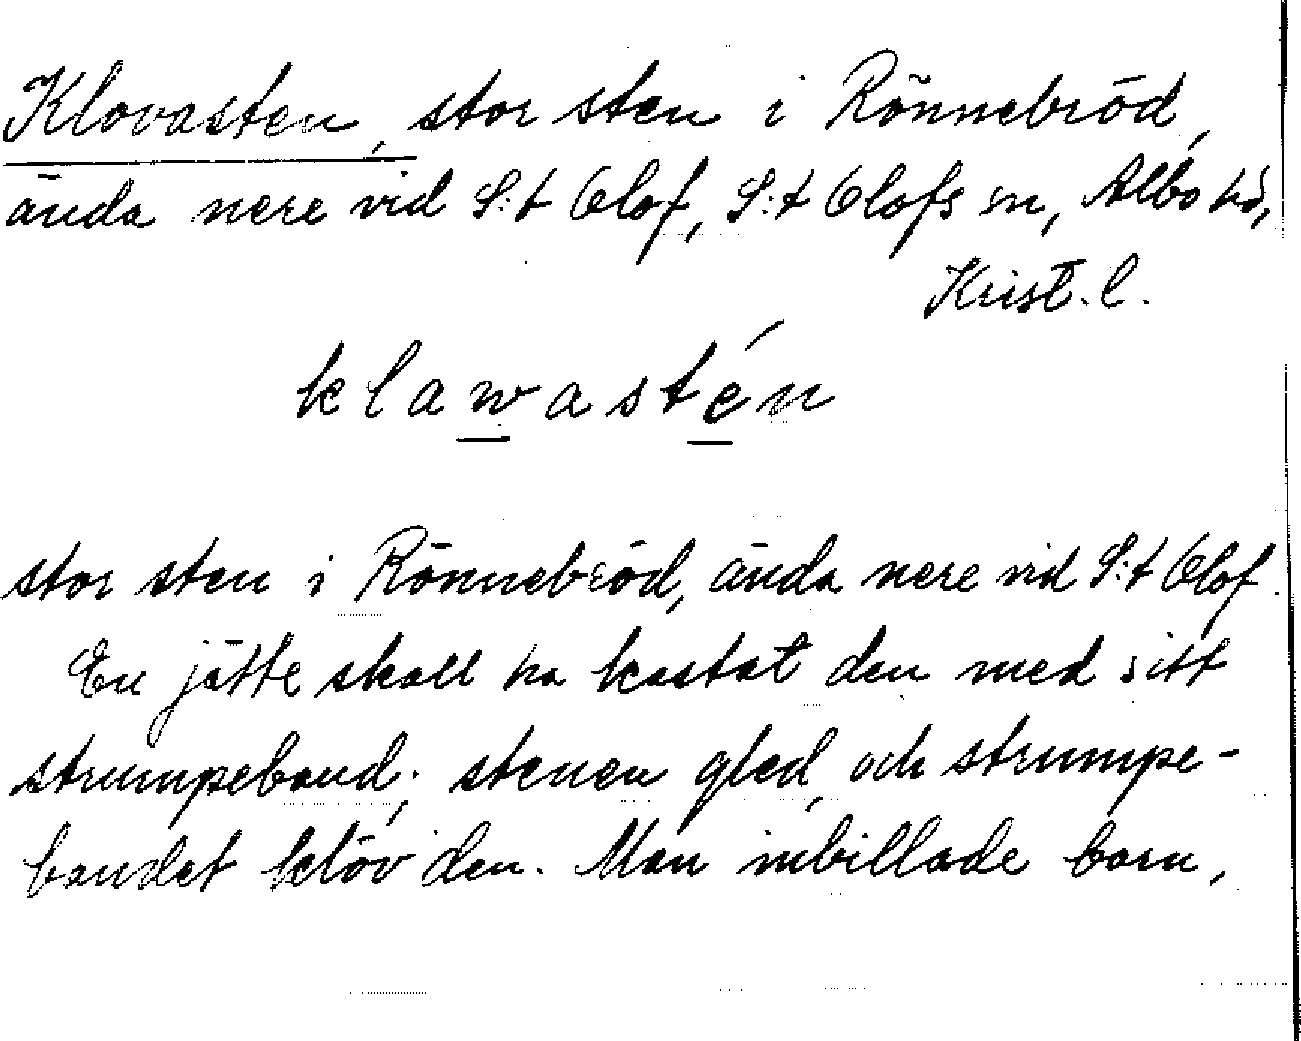 Klovasten, stor sten i Rönnebröd,
ända nere vid S:t Olof, S:t Olofs sn, Albo hd,
Krist. l.
klawastén
stor sten i Rönnebröd, ända nere vid S:t Olof.
En jätte skall ha kastat den med sitt
strumpeband; stenen gled, och strumpe-
bandet klöv den. Man inbillade barn,